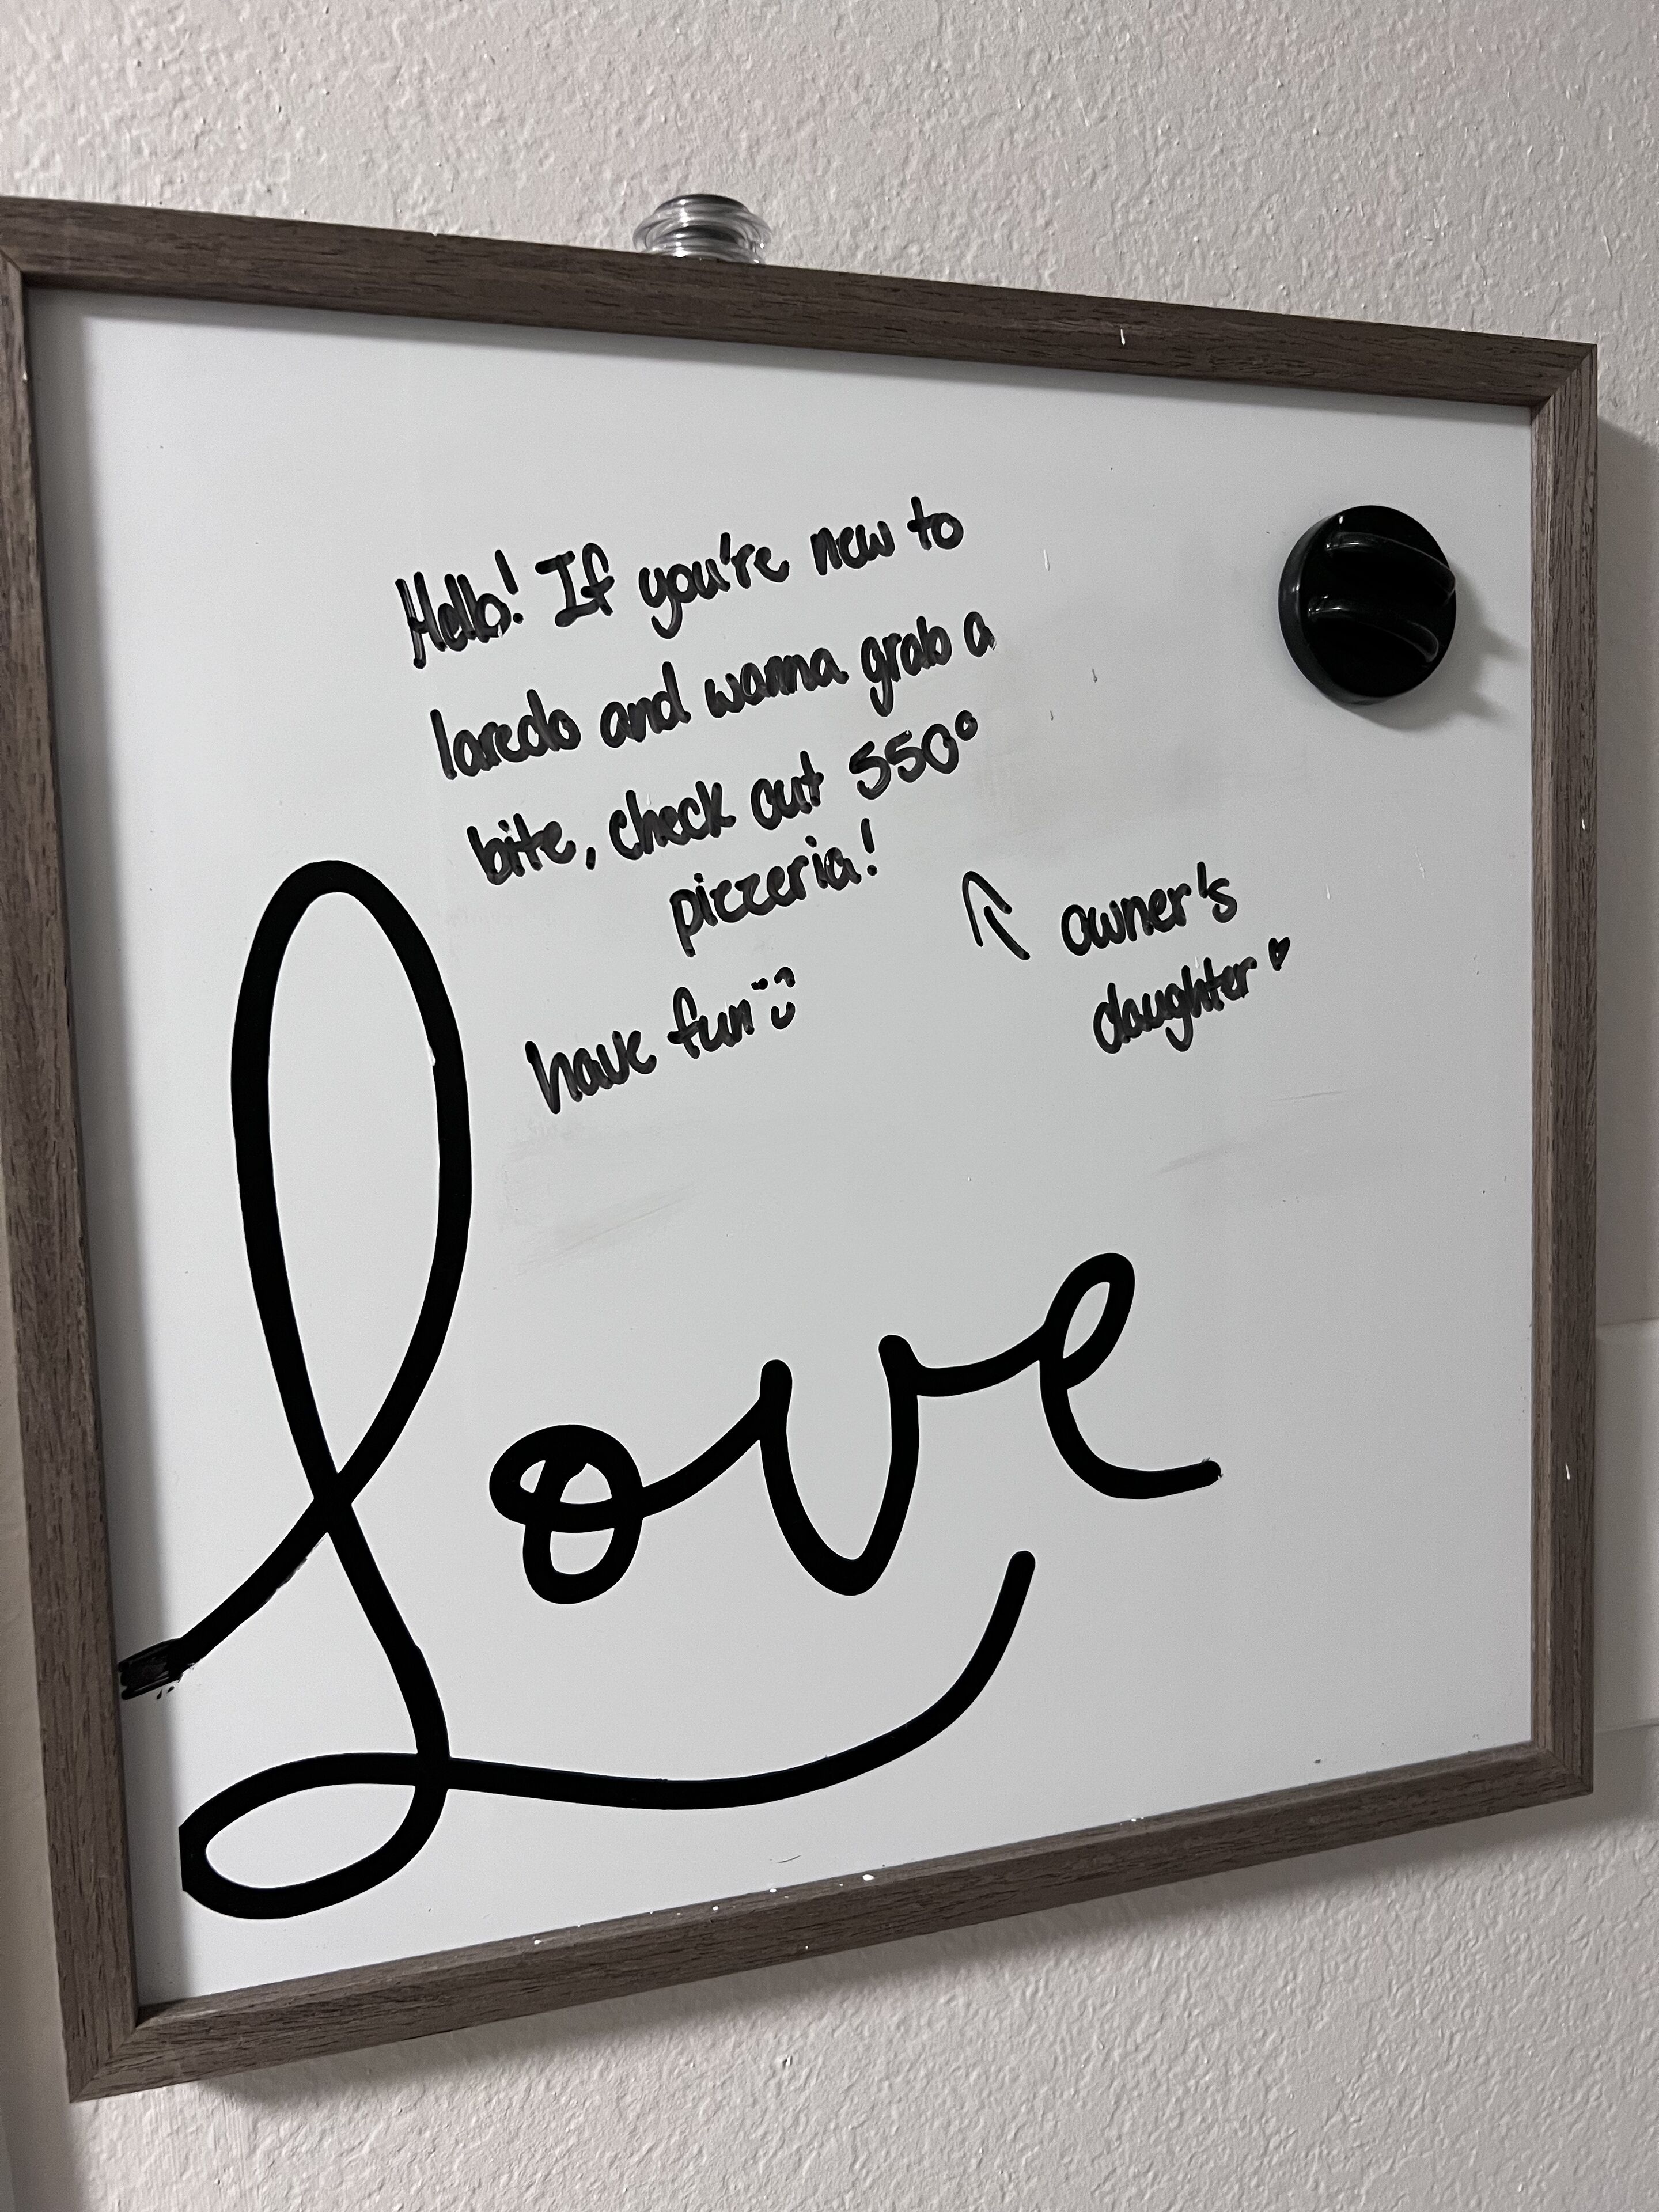 Hello! If you're new to
laredo and wanna grab a
bite, check out 550°
pizzeria!
have fun
owner's
daughter
Love